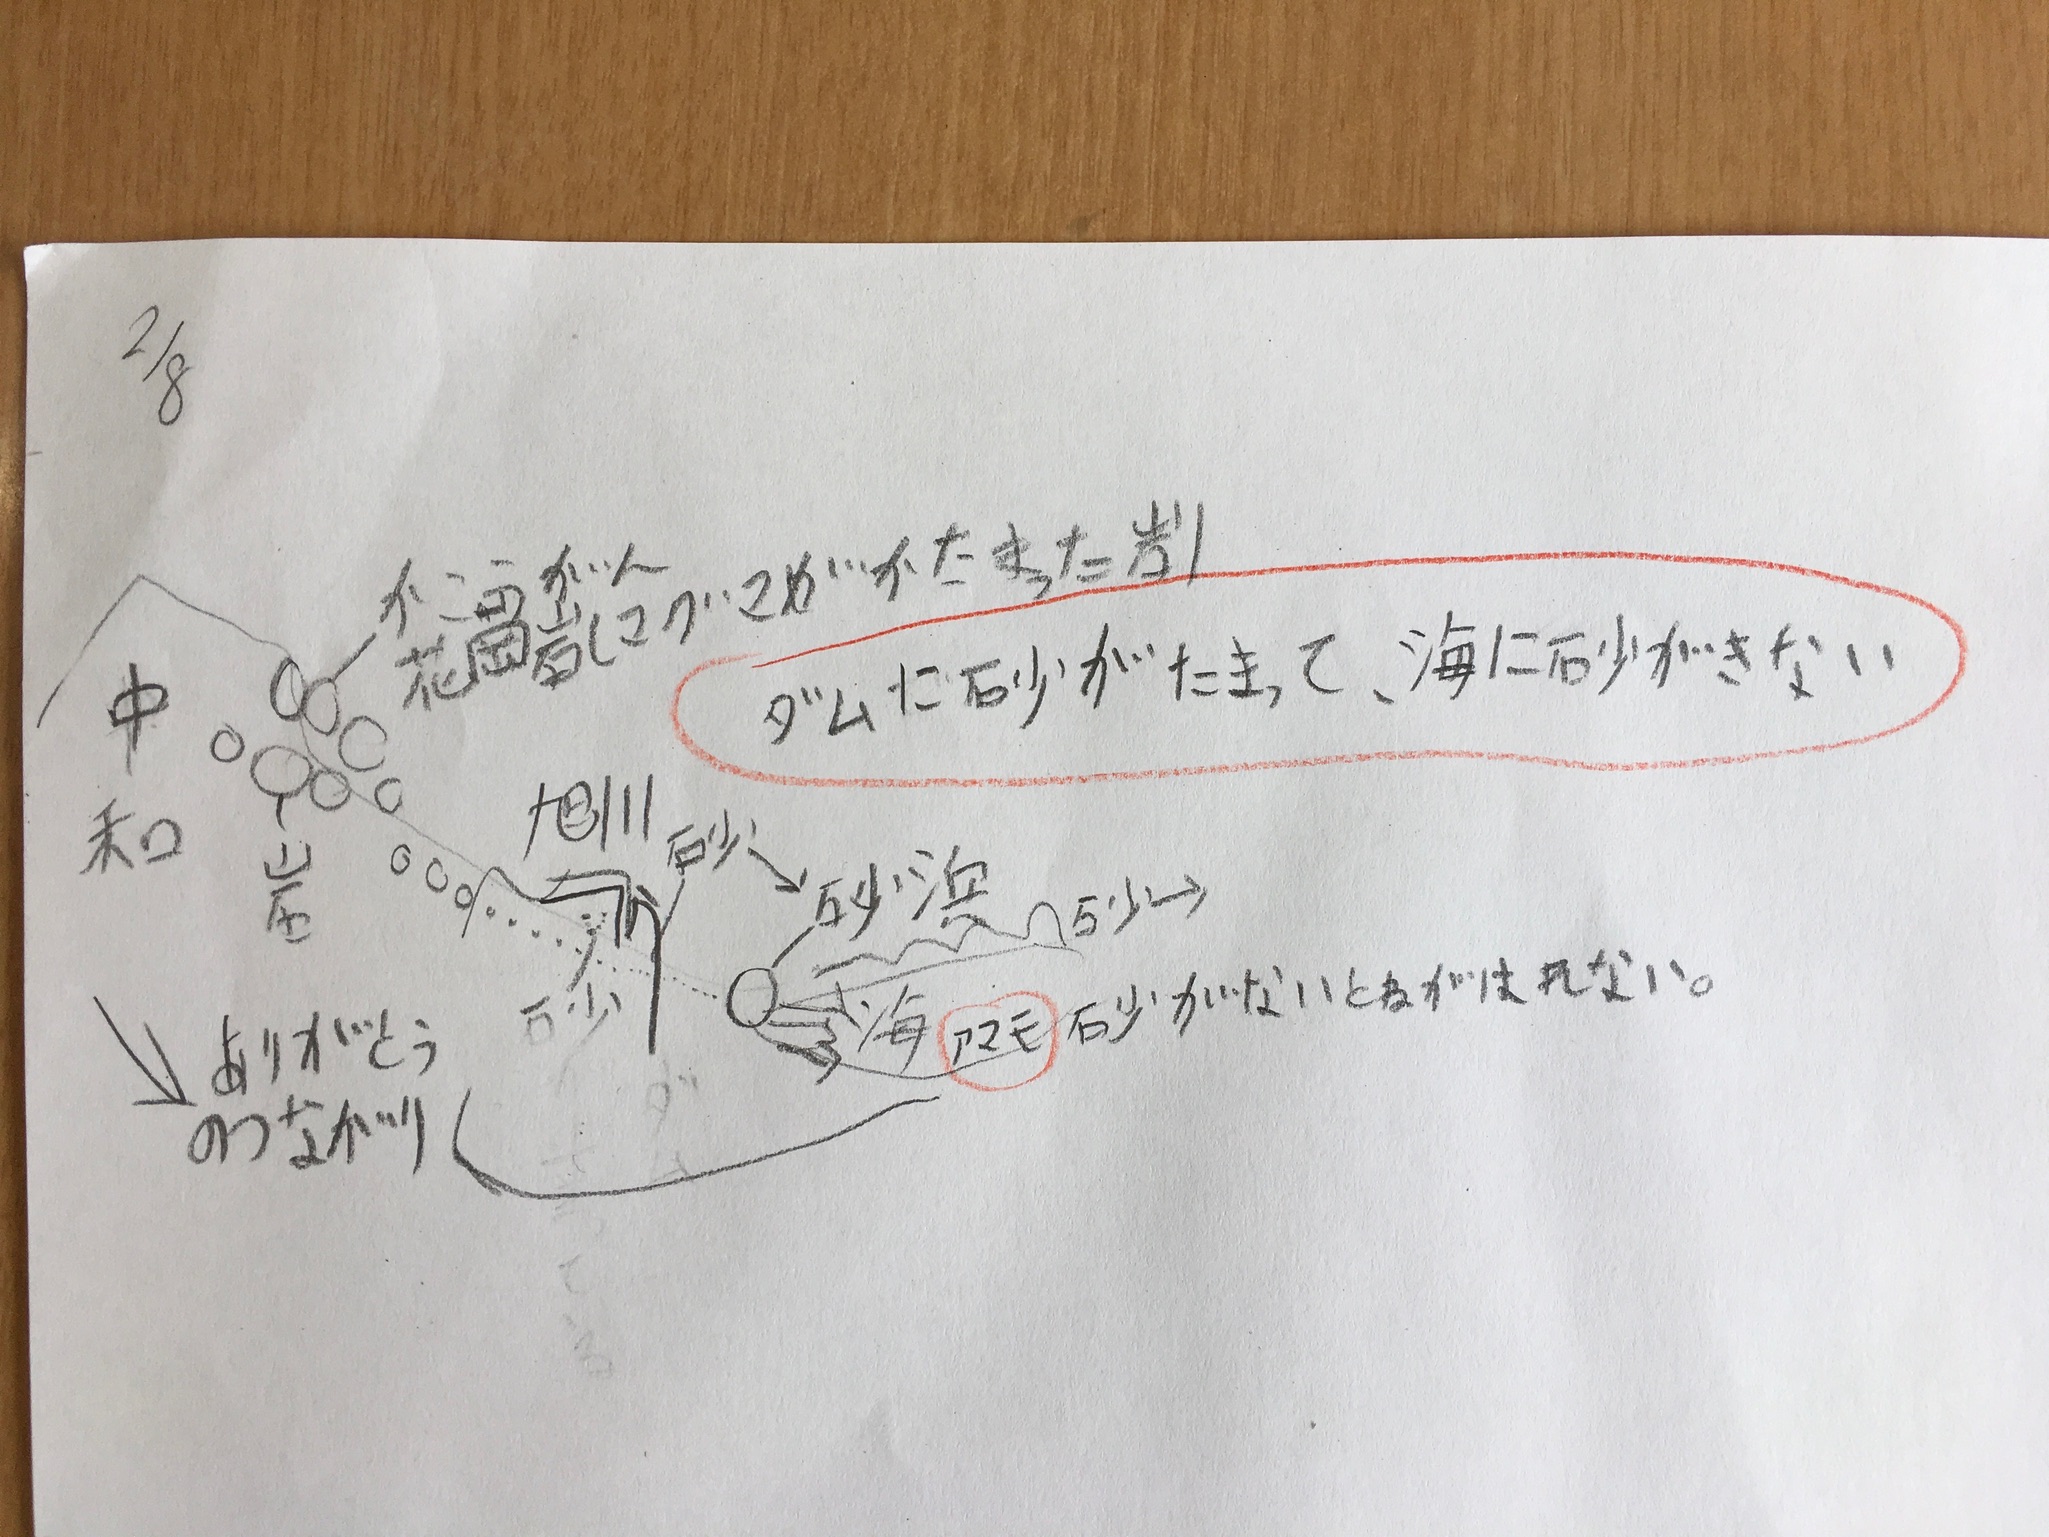 2/8
かこうがん
花崗岩(マグマがかたまった岩)
ダムに砂がたまって、海に砂がきない
中和
岩
旭川
砂
砂浜
砂
砂
海 アマモ 砂がないとねがはれない。
ありがとう
のつながり